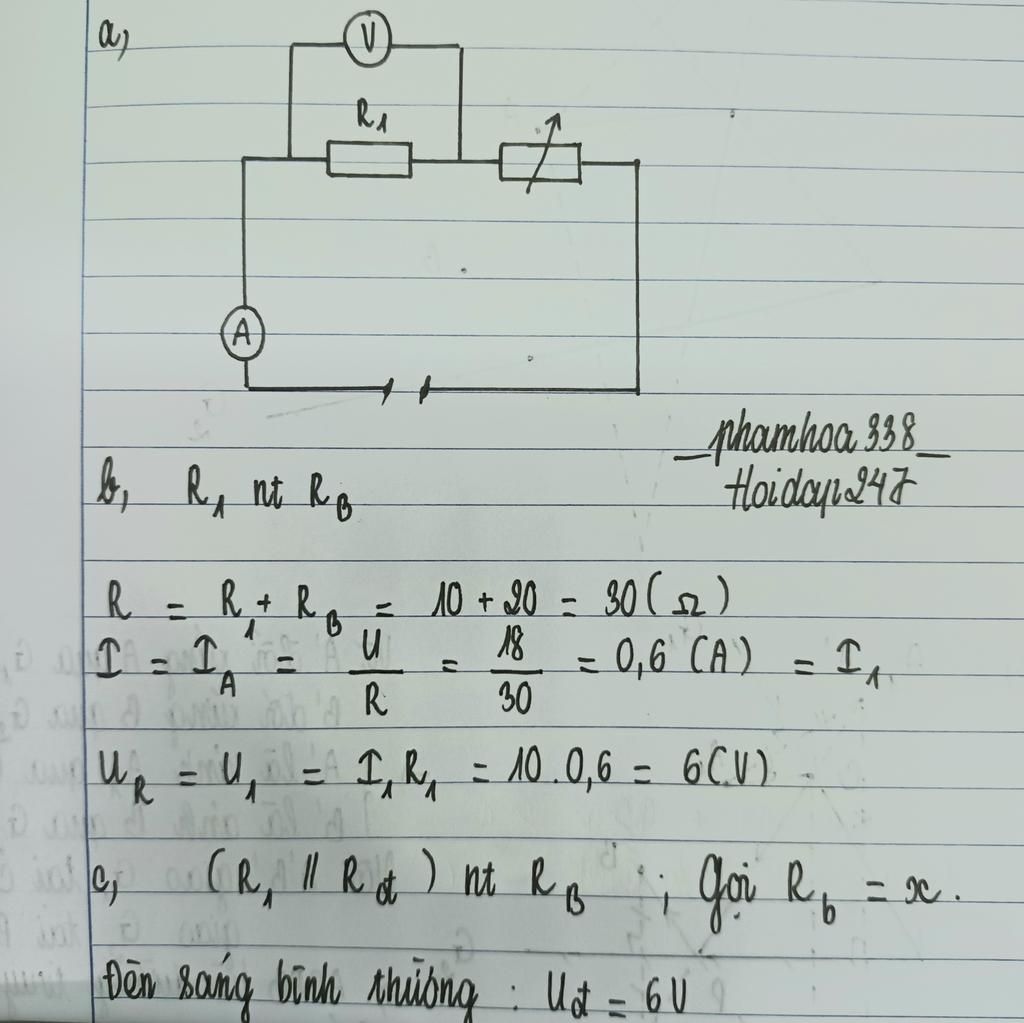 a,
V
R₁
A
_phamhoa338_
Hoidap247
b, R₁ nt R_B
R = R₁ + R_B = 10 + 20 = 30 (Ω)
I = I_A = U/R = 18/30 = 0,6 (A) = I₁
U_R = U₁ = I₁R₁ = 10.0,6 = 6(V)
c, (R₁ // R_đ) nt R_B ; Gọi R_b = x.
Đèn sáng bình thường : U_đ = 6V